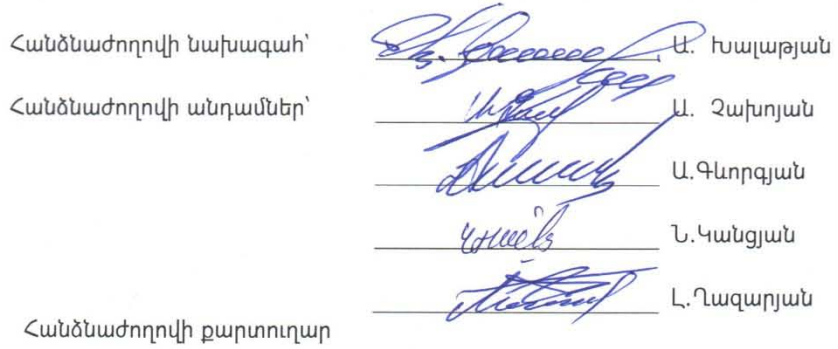 Հանձնաժողովի նախագահ՝ Ա. Խալաթյան
Հանձնաժողովի անդամներ՝ Ա. Չախոյան
Ա.Գևորգյան
Ն.Կանցյան
Լ.Ղազարյան
Հանձնաժողովի քարտուղար